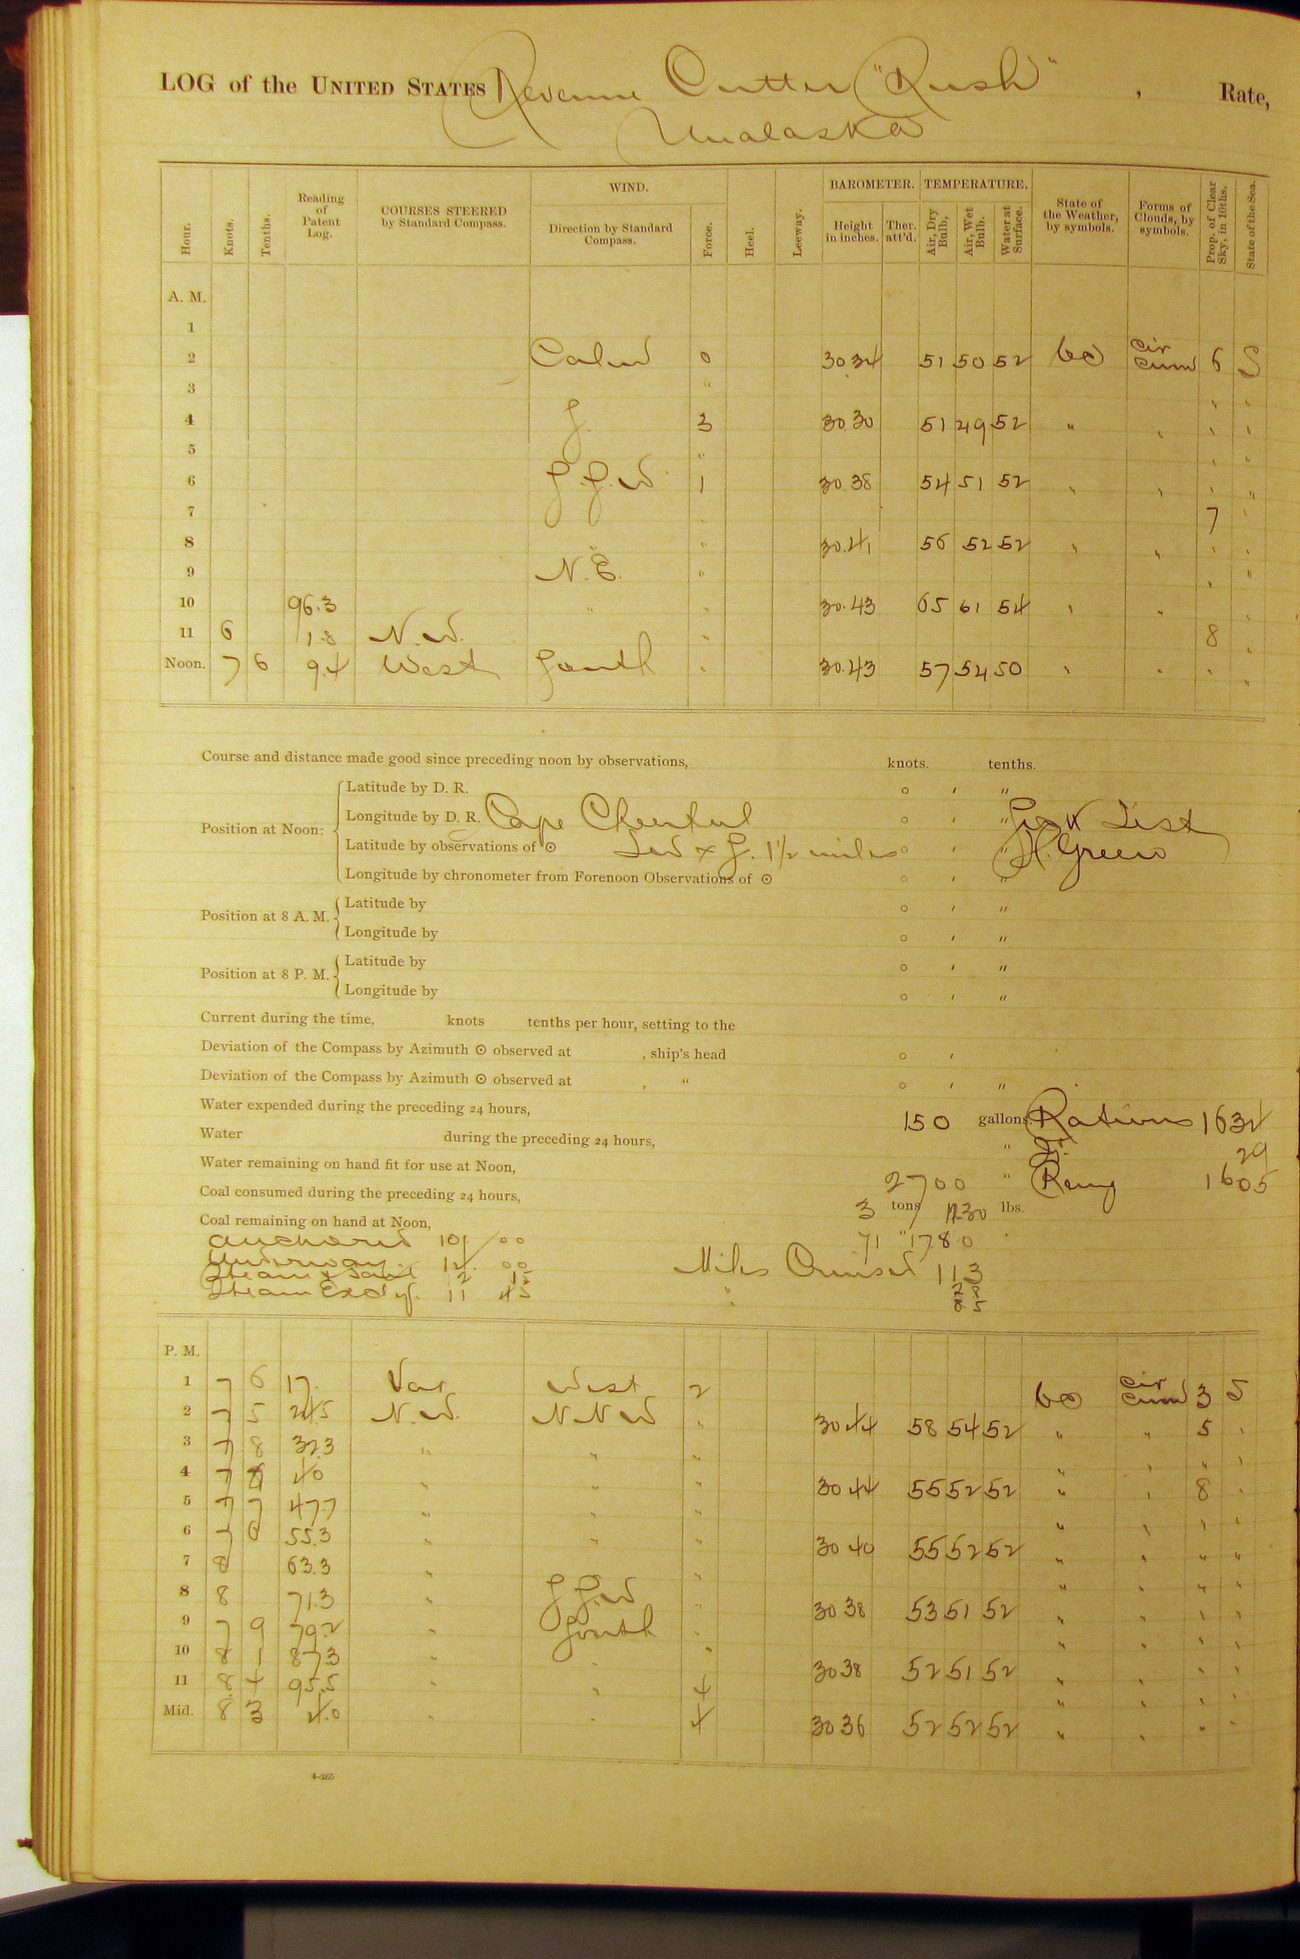 LOG of the UNITED STATES Revenue Cutter "Rush" , Rate,
Unalaska
Hour. Knots. Tenths. Reading of Patent Log. COURSES STEERED by Standard Compass. WIND. Direction by Standard Compass. Force. Heel. Leeway. BAROMETER. Height in inches. Ther. att'd. TEMPERATURE. Air, Dry Bulb, Air, Wet Bulb. Water at Surface. State of the Weather, by symbols. Forms of Clouds, by symbols. Prop. of Clear Sky, in 10ths. State of the Sea.
A. M.
1
2 Calm 0 30 34 51 50 52 bc cir cum 6 S
3 " " "
4 S. 3 30.30 51 49 52 " " " "
5 " " "
6 S.S.W 1 30.38 54 51 52 " " " "
7 " 7 "
8 " " 30.41 56 52 52 " " " "
9 N.E. " " "
10 96.3 " " 30.43 65 61 54 " " "
11 6 1.8 N.W. " 8 "
Noon. 7 6 9.4 West South " 30.43 57 54 50 " " " "
Course and distance made good since preceding noon by observations, knots. tenths.
Position at Noon:
Latitude by D. R. ° ′ ″
Longitude by D. R. Cape Cheerful ° ′ ″ Sick List
Latitude by observations of ⊙ 1½ miles ° ′ ″ H. Green
Longitude by chronometer from Forenoon Observations of ⊙ ° ′ ″
Position at 8 A. M.
Latitude by ° ′ ″
Longitude by ° ′ ″
Position at 8 P. M.
Latitude by ° ′ ″
Longitude by ° ′ ″
Current during the time, knots tenths per hour, setting to the
Deviation of the Compass by Azimuth ⊙ observed at , ship's head ° ′
Deviation of the Compass by Azimuth ⊙ observed at , " ° ′ ″
Water expended during the preceding 24 hours, 150 gallons. Rations 1634
Water during the preceding 24 hours, " 29
Water remaining on hand fit for use at Noon, 2700 " Remg 1605
Coal consumed during the preceding 24 hours, 3 tons 1230 lbs.
Coal remaining on hand at Noon, 71 " 1780
Anchored 10 00
Underway 14 00 Miles Cruised 113
Steam & Sail 2 15
Steam Excly. 11 45
P. M.
1 7 6 17. Var West 2 bc cir cum 3 S
2 7 5 24.5 N.W. N N W " 30 44 58 54 52 " " 5 "
3 7 8 32.3 " " " " " " "
4 7 40 " " " 30 44 55 52 52 " " 8 "
5 7 7 47.7 " " " " " " "
6 7 6 55.3 " " " 30 40 55 52 52 " " " "
7 8 63.3 " " " " " "
8 8 71.3 " S S.W " 30 38 53 51 52 " " " "
9 7 9 79.2 " South " " " " "
10 8 1 87.3 " " " 30 38 52 51 52 " " " "
11 8 4 95.5 " " 4 " " " "
Mid. 8 3 4.0 " " 4 30 36 52 52 52 " " " "
4-265